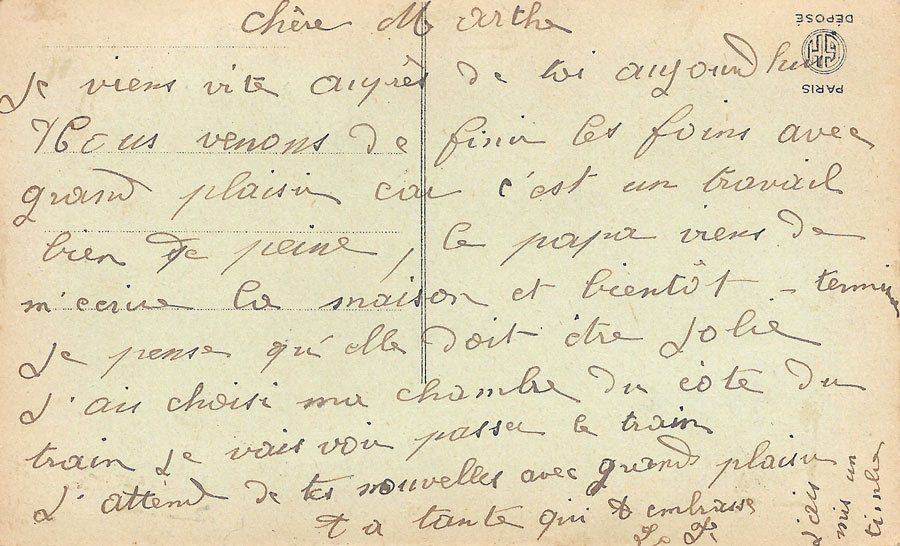 Chère Marthe
Je viens vite auprès de toi aujourd hui
Nous venons de finir les foins avec
grand plaisir car c'est un travail
bien de peine, le papa viens de
m'ecrire la maison et bientôt - termine
Je pense qu'elle doit être Jolie
J'ais choisi ma chambre du côte du
train Je vais voir passer le train
J'attend de tes nouvelles avec grand plaisir
ta tante qui t embrasse
J'ais
mis un
timbre
DÉPOSÉ
PARIS